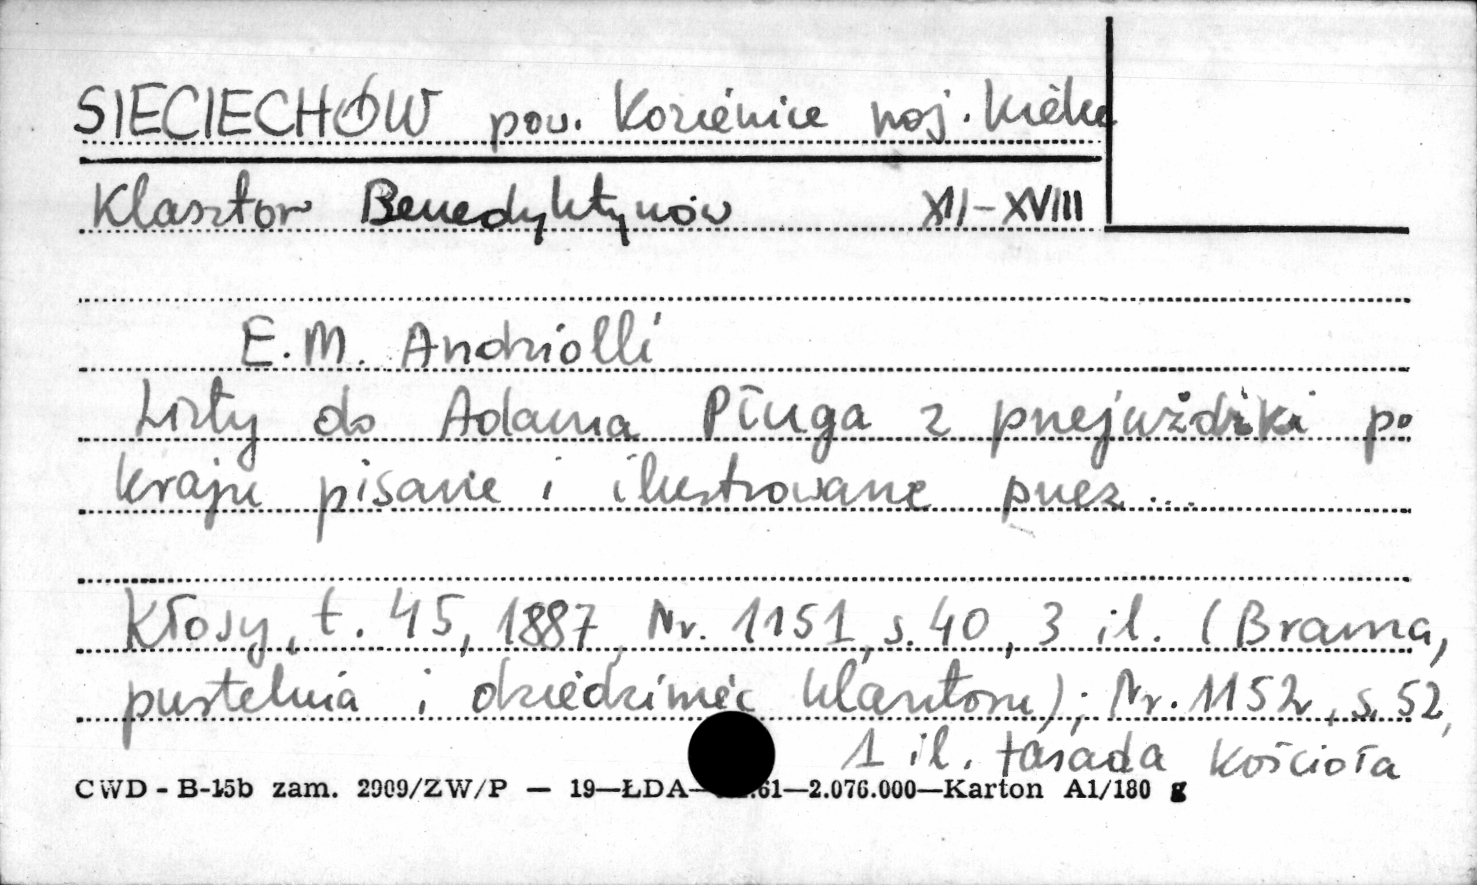 SIECIECHÓW pow. Kozienice woj. Kielce
Klasztor Benedyktynów XII-XVIII
E.M. Andriolli
Listy do Adama Pługa z przejażdżki po
kraju pisane i ilustrowane przez...
Kłosy, t. 45, 1887, Nr. 1151, s. 40, 3 il. (Brama,
pustelnia i dziedziniec klasztoru); Nr. 1152, s. 52,
1 il. fasada kościoła
CWD - B-15b zam. 2909/ZW/P — 19—ŁDA— 61—2.076.000—Karton A1/180 g